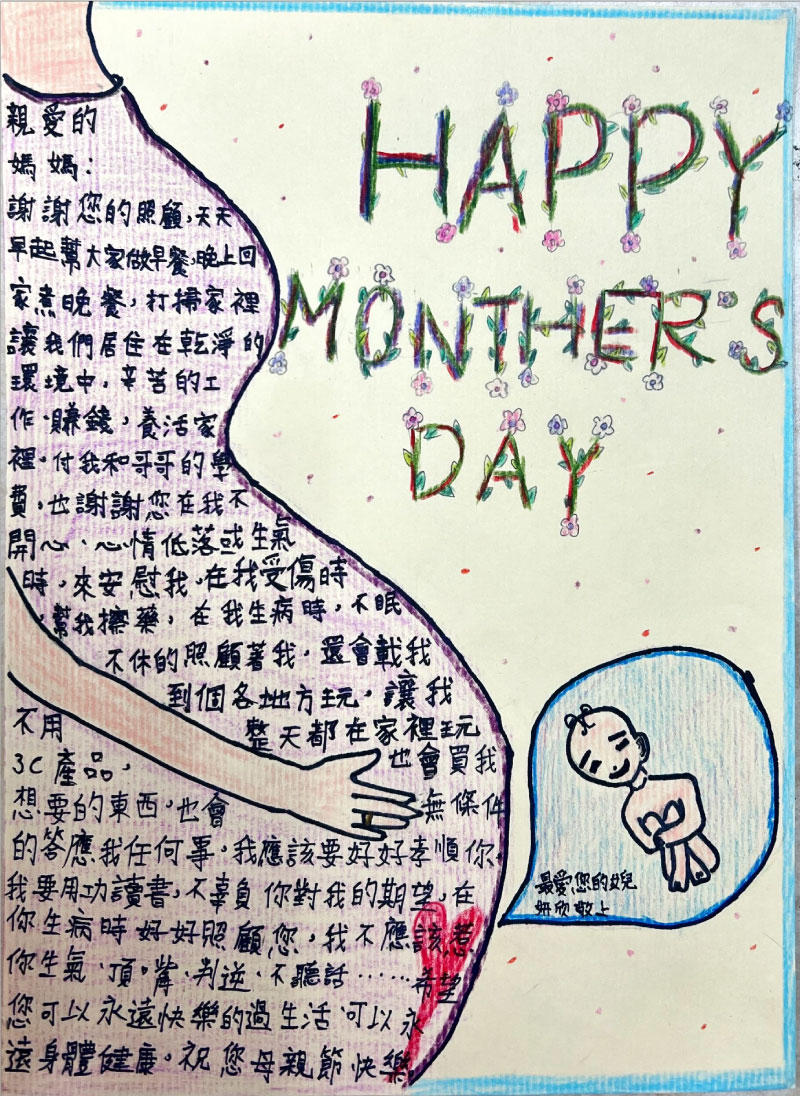 HAPPY
MONTHER'S
DAY
親愛的
媽媽：
謝謝您的照顧，天天
早起幫大家做早餐，晚上回
家煮晚餐，打掃家裡
讓我們居住在乾淨的
環境中，辛苦的工
作、賺錢，養活家
裡，付我和哥哥的學
費，也謝謝您在我不
開心、心情低落或生氣
時，來安慰我，在我受傷時
，幫我擦藥，在我生病時，不眠
不休的照顧著我，還會載我
到個各地方玩，讓我
不用整天都在家裡玩
3C產品，也會買我
想要的東西，也會無條件
的答應我任何事，我應該要好好孝順你，
我要用功讀書，不辜負你對我的期望，在
你生病時好好照顧您，我不應該惹
你生氣、頂嘴、判逆、不聽話……希望
您可以永遠快樂的過生活、可以永
遠身體健康。祝您母親節快樂
最愛您的女兒
妍欣敬上